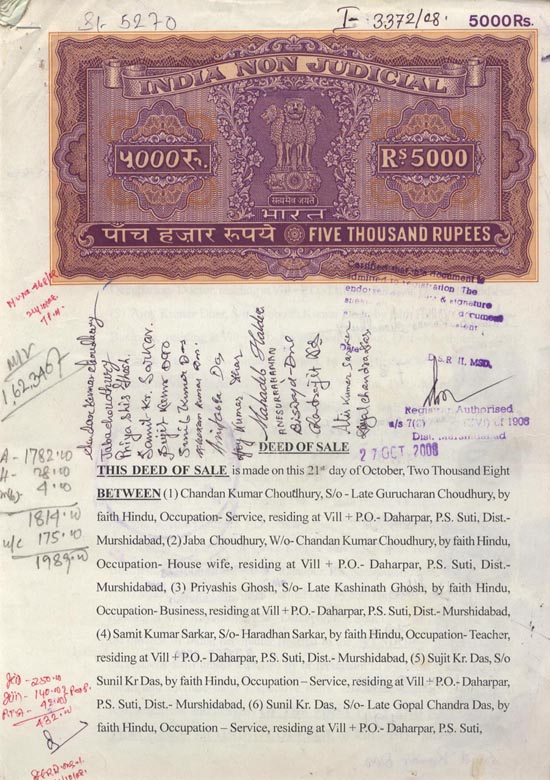 Sl. 5270
I- 3372/08.
5000Rs.
INDIA NON JUDICIAL
५000रु.
Rs 5000
सत्यमेव जयते
भारत
पाँच हजार रूपये
FIVE THOUSAND RUPEES
Certified that this document is
admitted to registration The
signature
document
D.S.R-II, MSD.
Registrar Authorised
u/s 7(2) of 1908
Dist. Murshidabad
27 OCT 2008
M/V
1,62,340/
Chandan Kumar Choudhury
Jaba choudhury
Priya Shis Ghosh.
Samit Kr. Sarkar.
Sujit Kumar Das
Sunil Kumar Das
Mahadeb Halder
ANESURRAHAMAN
Biswajit Das
Indrajit Das
Atis Kumar Sarkar
A - 1782.00
H - 28.00
4.00
1814.00
u/c 175.00
1989.00
DEED OF SALE
THIS DEED OF SALE is made on this 21st day of October, Two Thousand Eight
BETWEEN (1) Chandan Kumar Choutdhury, S/o - Late Gurucharan Choudhury, by
faith Hindu, Occupation- Service, residing at Vill + P.O.- Daharpar, P.S. Suti, Dist.-
Murshidabad, (2) Jaba Choudhury, W/o- Chandan Kumar Choudhury, by faith Hindu,
Occupation- House wife, residing at Vill + P.O.- Daharpar, P.S. Suti, Dist.-
Murshidabad, (3) Priyashis Ghosh, S/o- Late Kashinath Ghosh, by faith Hindu,
Occupation- Business, residing at Vill + P.O.- Daharpar, P.S. Suti, Dist.- Murshidabad,
(4) Samit Kumar Sarkar, S/o- Haradhan Sarkar, by faith Hindu, Occupation- Teacher,
residing at Vill + P.O.- Daharpar, P.S. Suti, Dist.- Murshidabad, (5) Sujit Kr. Das, S/o
Sunil Kr Das, by faith Hindu, Occupation – Service, residing at Vill + P.O.- Daharpar,
P.S. Suti, Dist.- Murshidabad, (6) Sunil Kr. Das, S/o- Late Gopal Chandra Das, by
faith Hindu, Occupation – Service, residing at Vill + P.O.- Daharpar, P.S. Suti,
250.00
140.00
42.00
432.00